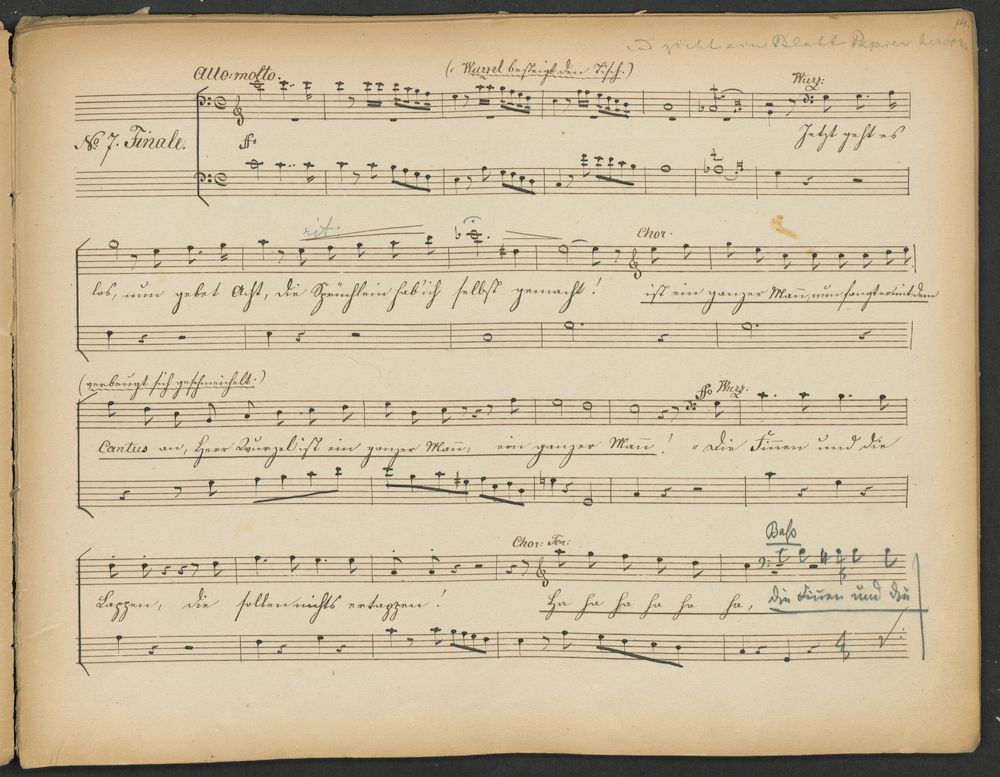 14.
zieht ein Blatt Papier hervor.
Allo: molto.
(: Wurzel besteigt den Tisch.)
Wurz:
No 7. Finale.
ffo
Jetzt geht es
rit:
Chor.
los, nun gebet Acht, die Sprüchlein hab' ich selbst gemacht! ist ein ganzer Mann, nun fangt er mit dem
(verbeugt sich geschmeichelt:)
ffo Wurz:
Cantus an, Herr Wurzel ist ein ganzer Mann, ein ganzer Mann! " Die Finnen und die
Chor: Ten:
Baß
Lappen, die sollen nichts ertappen! Ha ha ha ha ha ha, die Finnen und die